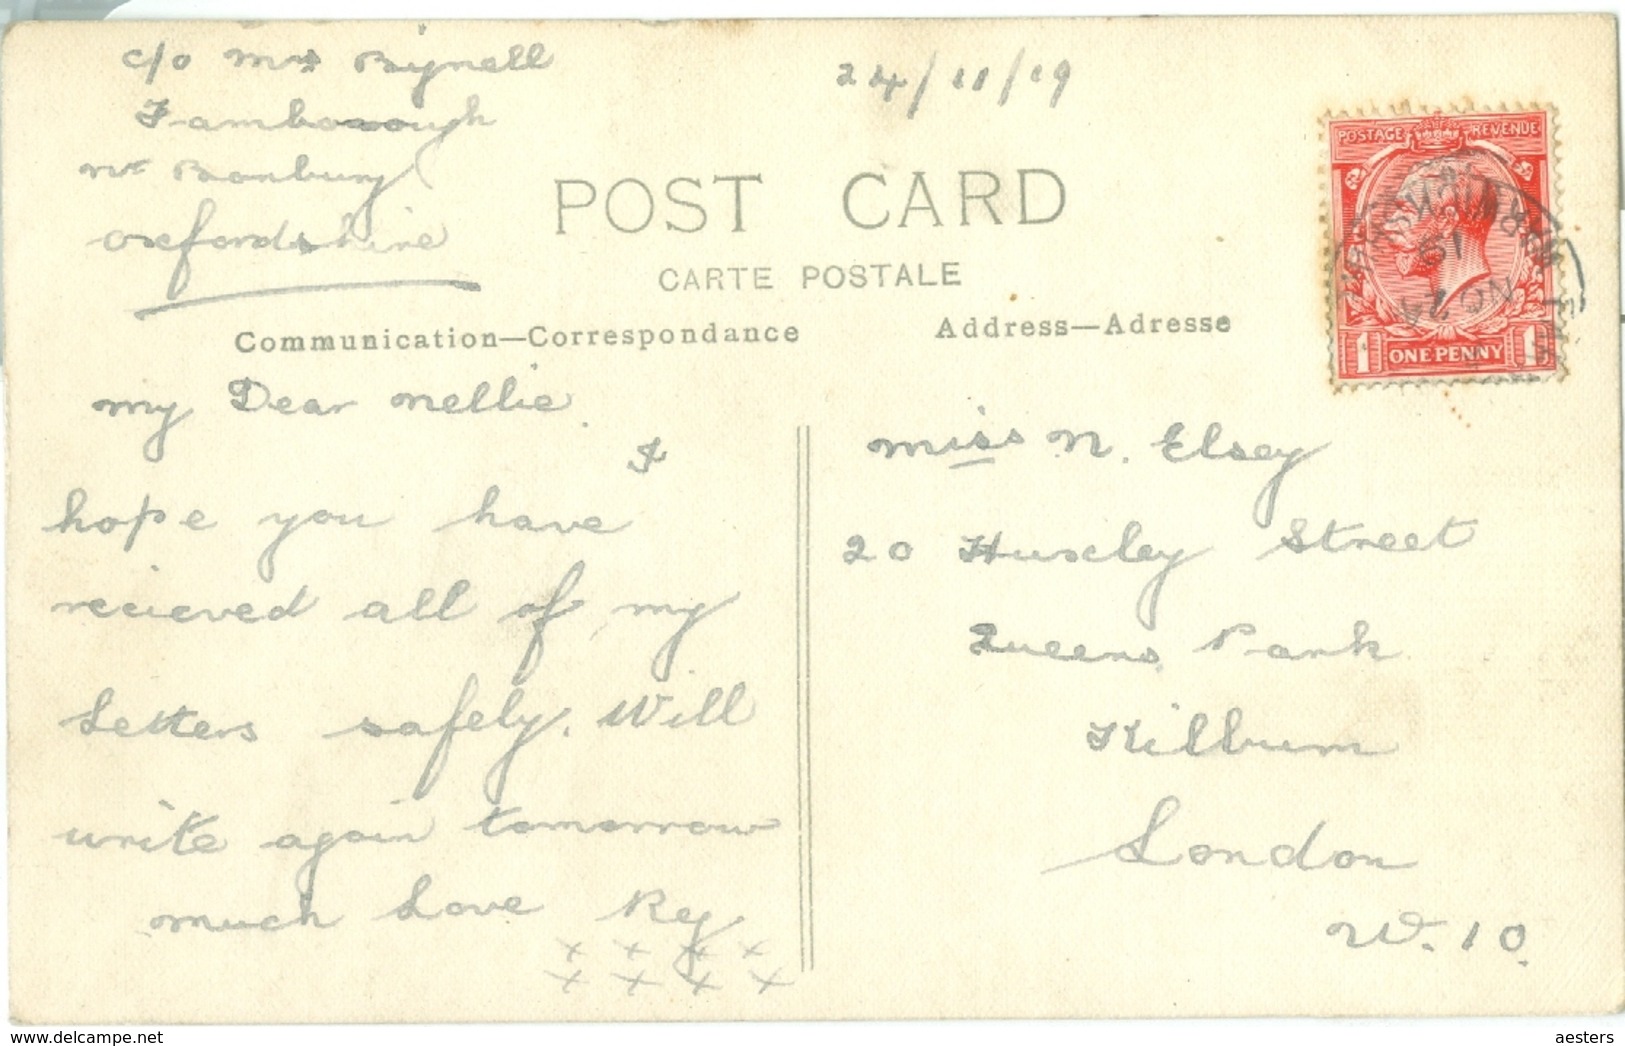 c/o Mrs Bignell
Farnborough
nr Banbury
Oxfordshire
24/11/19
POST CARD
CARTE POSTALE
Communication—Correspondance
Address—Adresse
POSTAGE REVENUE
1 ONE PENNY 1
WARWICKSHIRE
19
NO 24
my Dear Nellie
I
hope you have
recieved all of my
Letters safely. Will
write again tomorrow
much Love Reg.
x x x x
x x x x
Miss N. Elsey
20 Huxley Street
Queens Park
Kilburn
London
W. 10.
delcampe.net
aesters